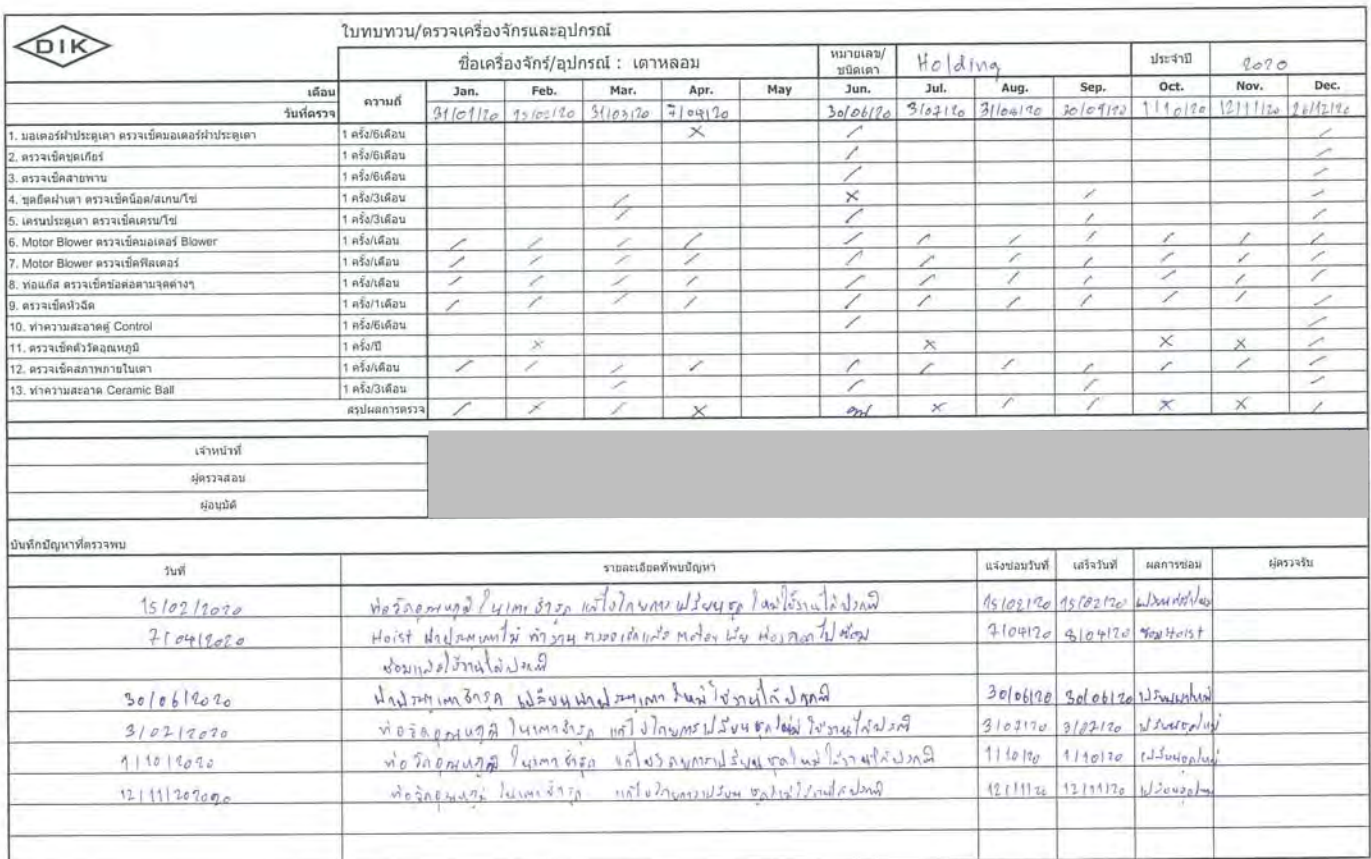 DIK
ใบทบทวน/ตรวจเครื่องจักรและอุปกรณ์
ชื่อเครื่องจักร์/อุปกรณ์ : เตาหลอม หมายเลข/ชนิดเตา Holding ประจำปี 2020
เดือน ความถี่ Jan. Feb. Mar. Apr. May Jun. Jul. Aug. Sep. Oct. Nov. Dec.
วันที่ตรวจ 31/01/20 15/02/20 31/03/20 7/04/20 30/06/20 3/07/20 30/09/20 1/10/20 12/11/20 26/12/20
1. มอเตอร์ฝาประตูเตา ตรวจเช็คมอเตอร์ฝาประตูเตา 1 ครั้ง/6เดือน × / /
2. ตรวจเช็คชุดเกียร์ 1 ครั้ง/6เดือน / /
3. ตรวจเช็คสายพาน 1 ครั้ง/6เดือน / /
4. ชุดยึดฝาเตา ตรวจเช็คน็อต/สเกน/โซ่ 1 ครั้ง/3เดือน / × / /
5. เครนประตูเตา ตรวจเช็คเครน/โซ่ 1 ครั้ง/3เดือน / / / /
6. Motor Blower ตรวจเช็คมอเตอร์ Blower 1 ครั้ง/เดือน / / / / / / / / / / /
7. Motor Blower ตรวจเช็คฟิลเตอร์ 1 ครั้ง/เดือน / / / / / / / / / / /
8. ท่อแก๊ส ตรวจเช็คข้อต่อตามจุดต่างๆ 1 ครั้ง/เดือน / / / / / / / / / / /
9. ตรวจเช็คหัวฉีด 1 ครั้ง/1เดือน / / / / / / / / / / /
10. ทำความสะอาดตู้ Control 1 ครั้ง/6เดือน / /
11. ตรวจเช็คตัววัดอุณหภูมิ 1 ครั้ง/ปี × × × × /
12. ตรวจเช็คสภาพภายในเตา 1 ครั้ง/เดือน / / / / / / / / / / /
13. ทำความสะอาด Ceramic Ball 1 ครั้ง/3เดือน / / / /
สรุปผลการตรวจ / × / × × / / × × /
เจ้าหน้าที่
ผู้ตรวจสอบ
ผู้อนุมัติ
บันทึกปัญหาที่ตรวจพบ
วันที่ รายละเอียดที่พบปัญหา แจ้งซ่อมวันที่ เสร็จวันที่ ผลการซ่อม ผู้ตรวจรับ
15/02/2020 ท่อวัดอุณหภูมิในเตาชำรุด แก้ไขโดยการเปลี่ยนชุดใหม่ใช้งานได้ปกติ 15/02/20 15/02/20
7/04/2020 Hoist ฝาประตูเตาไม่ทำงาน ตรวจเช็คแล้ว Motor ไปซ่อม 7/04/20 8/04/20 ซ่อม Hoist
ซ่อมแล้วใช้งานได้ปกติ
30/06/2020 ฝาประตูเตาชำรุด เปลี่ยนฝาประตูเตาใหม่ใช้งานได้ปกติ 30/06/20 30/06/20 เปลี่ยนฝาใหม่
3/07/2020 ท่อวัดอุณหภูมิในเตาชำรุด แก้ไขโดยการเปลี่ยนชุดใหม่ใช้งานได้ปกติ 3/07/20 3/07/20 เปลี่ยนชุดใหม่
1/10/2020 ท่อวัดอุณหภูมิในเตาชำรุด แก้ไขโดยการเปลี่ยนชุดใหม่ใช้งานได้ปกติ 1/10/20 1/10/20 เปลี่ยนชุดใหม่
12/11/202020 ท่อวัดอุณหภูมิในเตาชำรุด แก้ไขโดยการเปลี่ยนชุดใหม่ใช้งานได้ปกติ 12/11/20 12/11/20 เปลี่ยนชุดใหม่